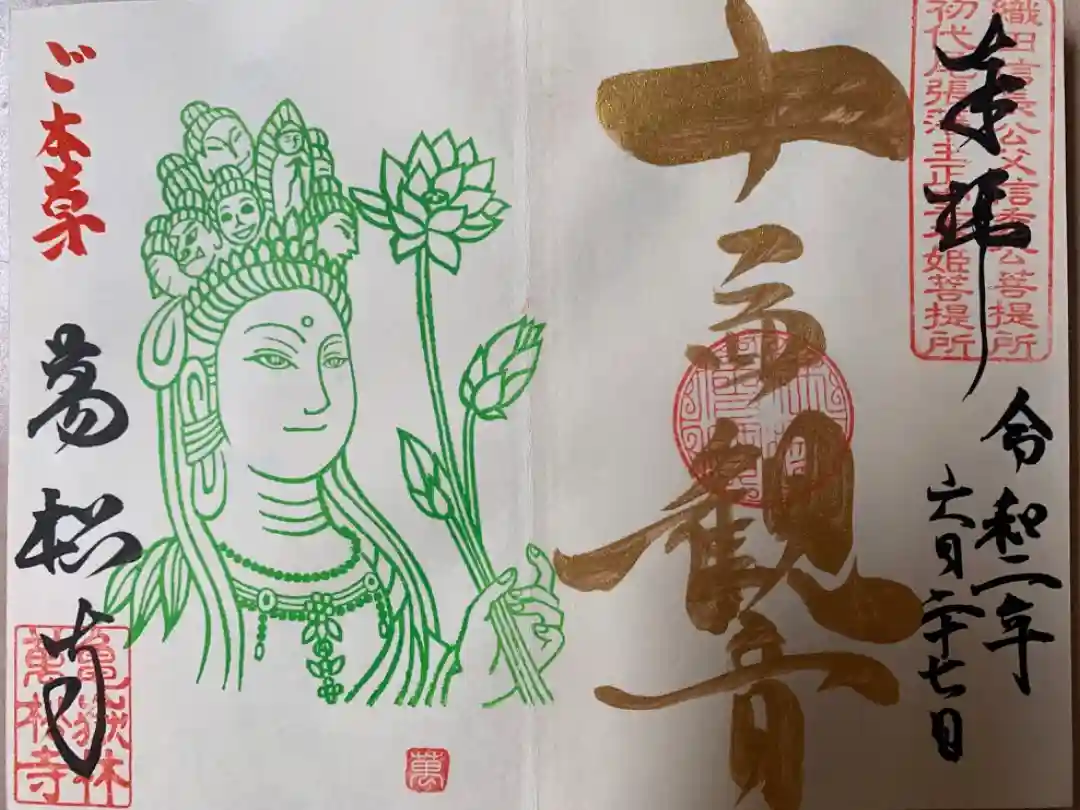 織田信長公父信秀公菩提所
初代尾張藩主正室春姫菩提所
奉拝
令和二年
六月二十七日
十一面観音
ご本尊
萬松寺
亀嶽林
萬松寺
萬